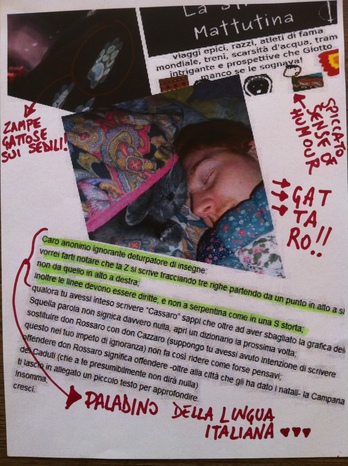 La S
Mattutina
viaggi epici, razzi, atleti di fama
mondiale, treni, scarsità d'acqua, tram
intrigante e prospettive che Giotto
manco se le sognava!
ZAMPE
GATTOSE
SUI SEDILI!
SPICCATO
SENSE OF
HUMOUR
GAT
TA
RO!!
Caro anonimo ignorante deturpatore di insegne:
vorrei farti notare che la Z si scrive tracciando tre righe partendo da un punto in alto a si
non da quello in alto a destra;
Inoltre le linee devono essere diritte, e non a serpentina come in una S storta;
qualora tu avessi inteso scrivere "Cassaro" sappi che oltre ad aver sbagliato la grafica del
Squella parola non signica davvero nulla, apri un dizionario la prossima volta;
sostituire don Rossaro con don Cazzaro (suppongo tu avessi avuto intenzione di scrivere
questo nel tuo impeto di ignoranza) non fa così ridere come forse pensavi;
offendere don Rossaro significa offendere -oltre alla città che gli ha dato i natali- la Campana
dei Caduti (che a te presumibilmente non dirà nulla)
ti lascio in allegato un piccolo testo per approfondire.
Insomma,
cresci.
PALADINO DELLA LINGUA
ITALIANA ♥♥♥